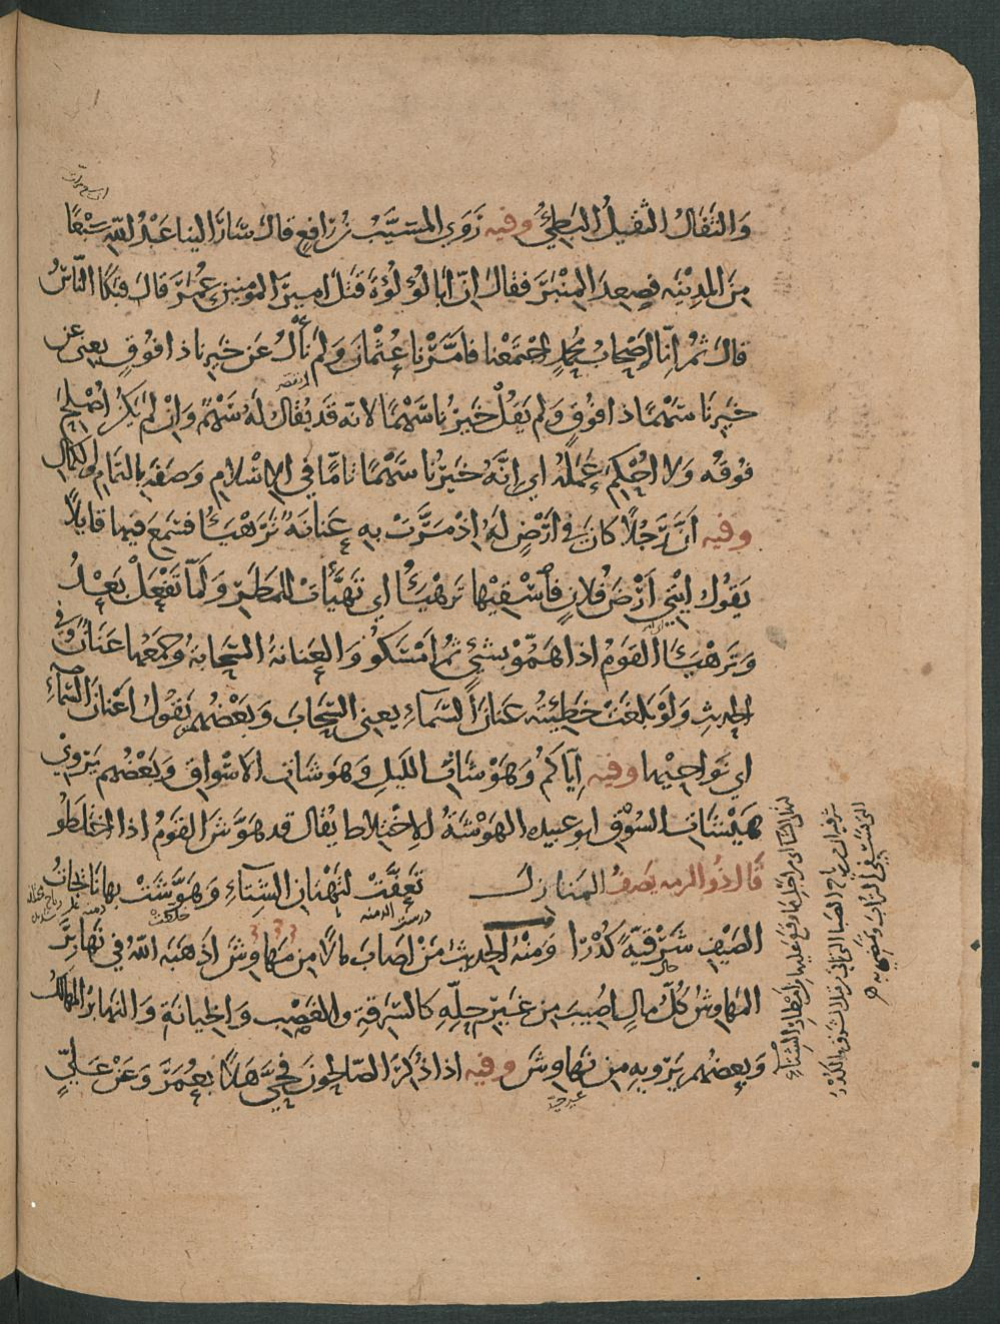 والثفال الثقيل البطئ وفيه روى المسيب بن رافع قال سار الينا عبد الله سبعا
من المدينه فصعد المنبر فقال ان ابا لؤلؤة قتل امير المومنين عمر قال فبكا الناس
قال ثم انا اصحاب محمد اجتمعنا فامرنا عثمان ولم نأل عن خيرنا ذا فوق يعنى عن
خيرنا سهما ذا فوق ولم يقل خيرنا سهما لانه قد يقال له سهم وان لم يكن اصلح
فوقه ولا احكم عمله اى انه خيرنا سهما تاما في الاسلام وصفه بالتمام والكمال
وفيه ان رجلا كان في ارض له اذ مرت به عنانة ترهيأ فسمع فيها قايلا
يقول ايتي ارض فلان فاسقيها ترهيأ اي تهيأت للمطر ولما تفعل بعد
وترهيأ القوم اذا هموا بشئ ثم امسكو والعنانة السحابة وجمعها عنان وفي
الحديث ولو بلغت خطيئته عنان السماء يعني السحاب وبعضهم يقول اعنان السماء
اي نواحيها وفيه اياكم وهوشات الليل وهوشات الاسواق وبعضهم يرويه
هيشات السوق ابو عبيده الهوشة الاختلاط يقال قد هوش القوم اذا اختلطو
قال ذو الرمه يصف المنازل تعفت لتهتان الشتاء وهوشت بها نائجات
الصيف شرقية كدرا ومنه الحديث من اصاب مالا من مهاوش اذهبه الله في نهابر
المهاوش كل مال اصيب من غير حله كالسرقة والغصب والخيانة والنهابر المهالك
وبعضهم يرويه من نهاوش وفيه اذا ذكر الصالحون فحي هلا بعمر وعن علي